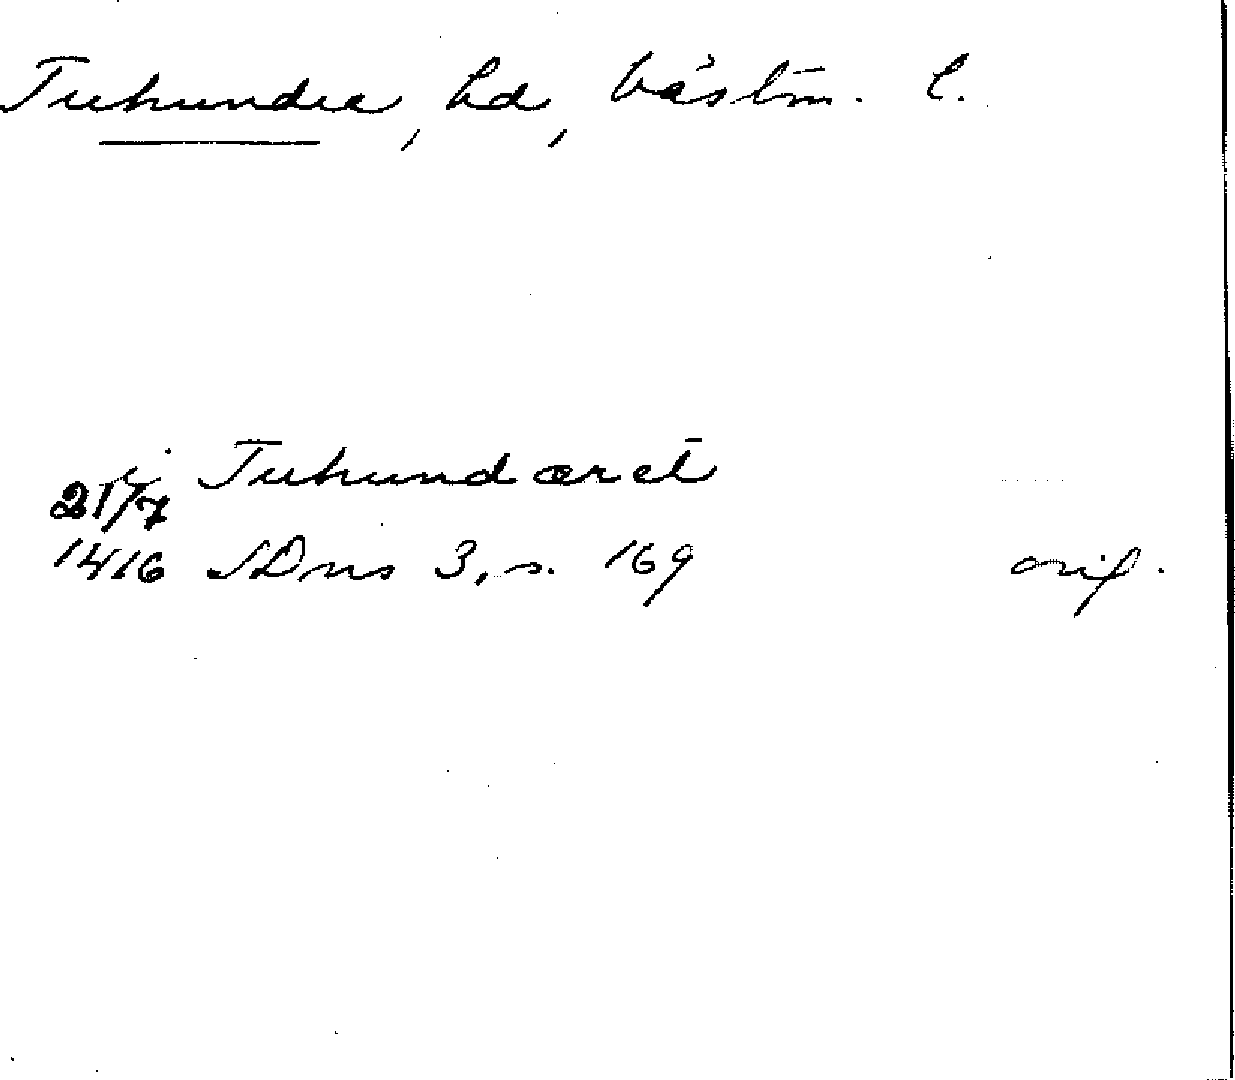 Tuhundra, hd, Västm. l.
i Tuhundæret
21/7
1416 SDns 3, s. 169 orig.